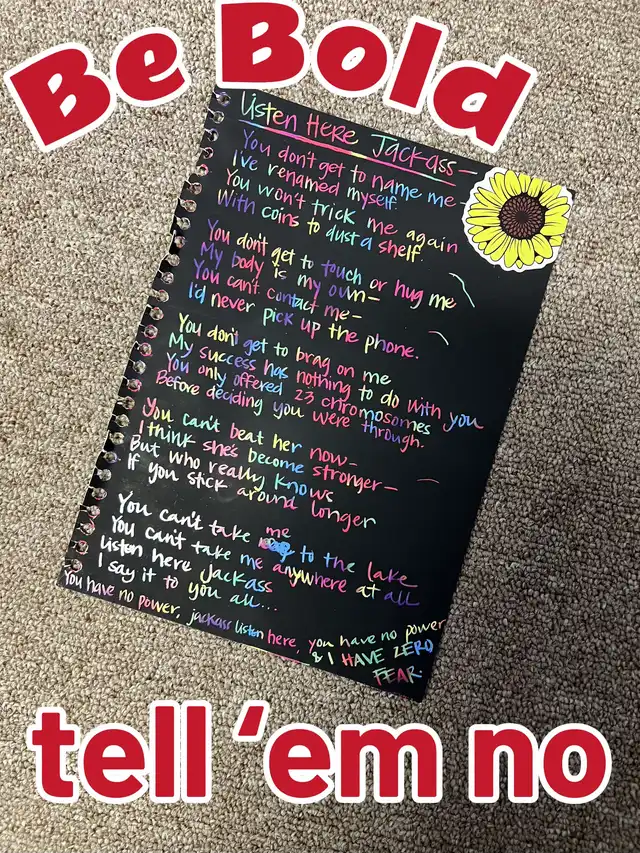 Be Bold
Listen Here Jackass—
You don't get to name me—
I've renamed myself.
You won't trick me again
With coins to dust a shelf.
You don't get to touch or hug me
My body is my own—
You can't contact me—
I'd never pick up the phone.
You don't get to brag on me
My success has nothing to do with you
You only offered 23 chromosomes
Before deciding you were through.
You can't beat her now—
I think she's become stronger—
But who really knows
If you stick around longer
You can't take me to the lake
You can't take me anywhere at all
Listen here Jackass
I say it to you all...
You have no power, jackass listen here, you have no power
& I HAVE ZERO
FEAR.
tell 'em no